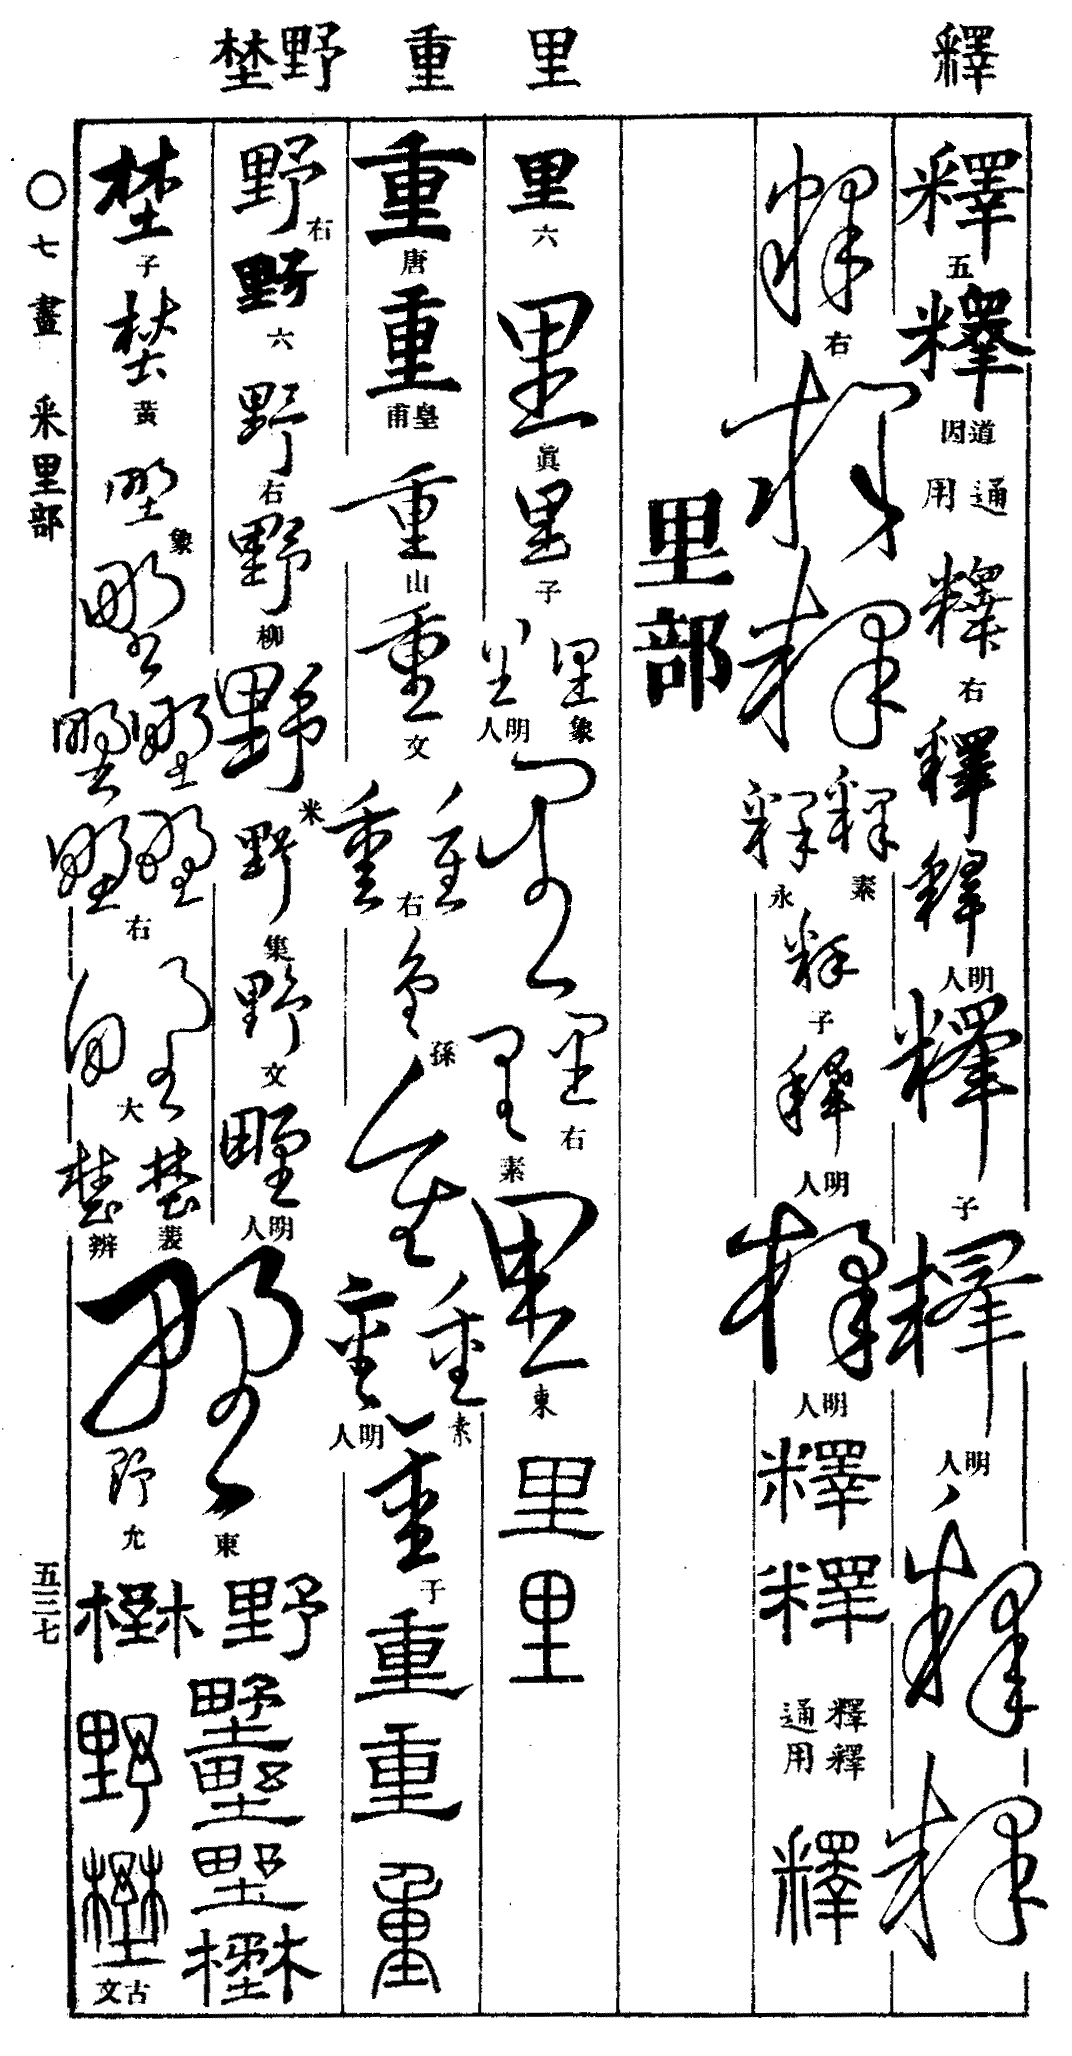 釋
里
重
野埜
釋 五
釋 道因
通用
釋 右
釋
釋 明人
釋 子
釋 明人
釋
釋
釋 右
釋
釋
釋 素
釋 永
釋 子
釋 明人
釋 明人
釋
釋
釋釋 通用
釋
里部
里 六
里 眞
里 子
里 象
里 明人
里
里 右
里 素
里 東
里
里
重 唐
重 皇甫
重 山
重 文
重
重 右
重 孫
重
重 素
重 明人
重 子
重
重
重
野 右
野 六
野 右
野 柳
野 米
野 集
野 文
野 明人
野 東
野
埜 子
埜 黃
野 象
野
野
野
野
野 右
野 大
埜 裴
埜 辨
野 允
野
古文
〇七畫 釆里部
五三七